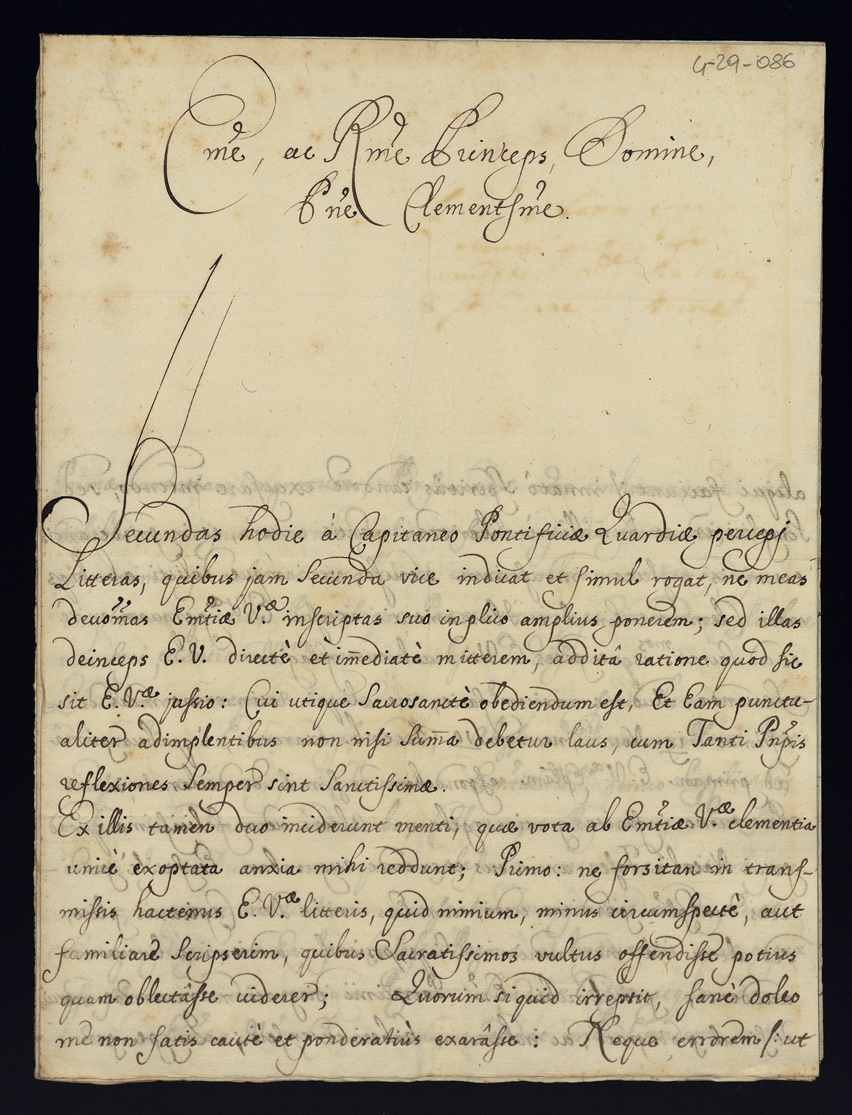 4-29-086
Eme, ac Rme Princeps, Domine,
Dne Clementsme.
Secundas hodie à Capitaneo Pontificiæ Quardiæ percepj
Litteras, quibus jam secunda vice indicat et simul rogat, ne meas
devomas Emtiæ V.æ inscriptas suo inplico amplius ponerem; sed illas
deinceps E. V. directè et imediatè mitterem, additâ ratione quod sic
sit E. V.æ jussio: Cui utique Sacrosanctè obediendum est, Et Eam punctu-
aliter adimplentibus non nisi suma debetur laus, cum Tanti Pnpis
reflexiones semper sint Sanctissimæ.
Ex illis tamen duo inciderunt menti, quæ vota ab Emtiæ V.æ clementia
unicè exoptata anxia mihi reddunt; Primo: ne forsitan in trans-
missis hactenus E. V.æ litteris, quid nimium, minus circumspectè, aut
familiare scripserim, quibus Sacratissimos vultus offendisse potius
quam oblectâsse viderer; Quorum si quid irrepsit, sanè doleo
me non satis cautè et ponderatiùs exarâsse: Neque errorem /: ut